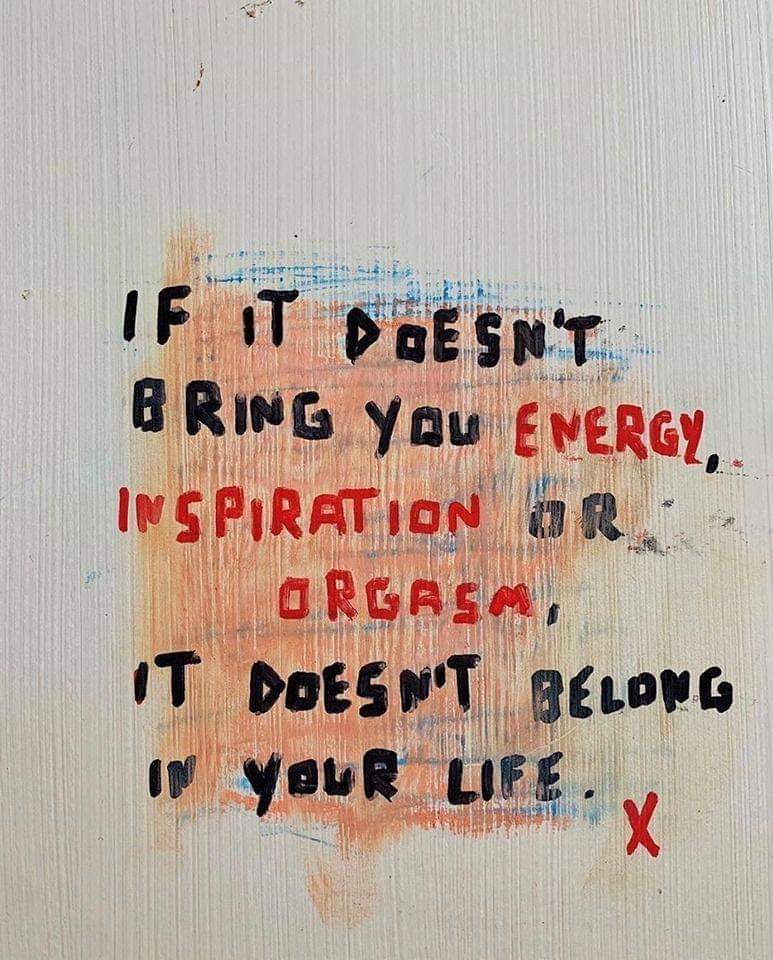 IF IT DOESN'T
BRING YOU ENERGY,
INSPIRATION OR
ORGASM,
IT DOESN'T BELONG
IN YOUR LIFE.
X